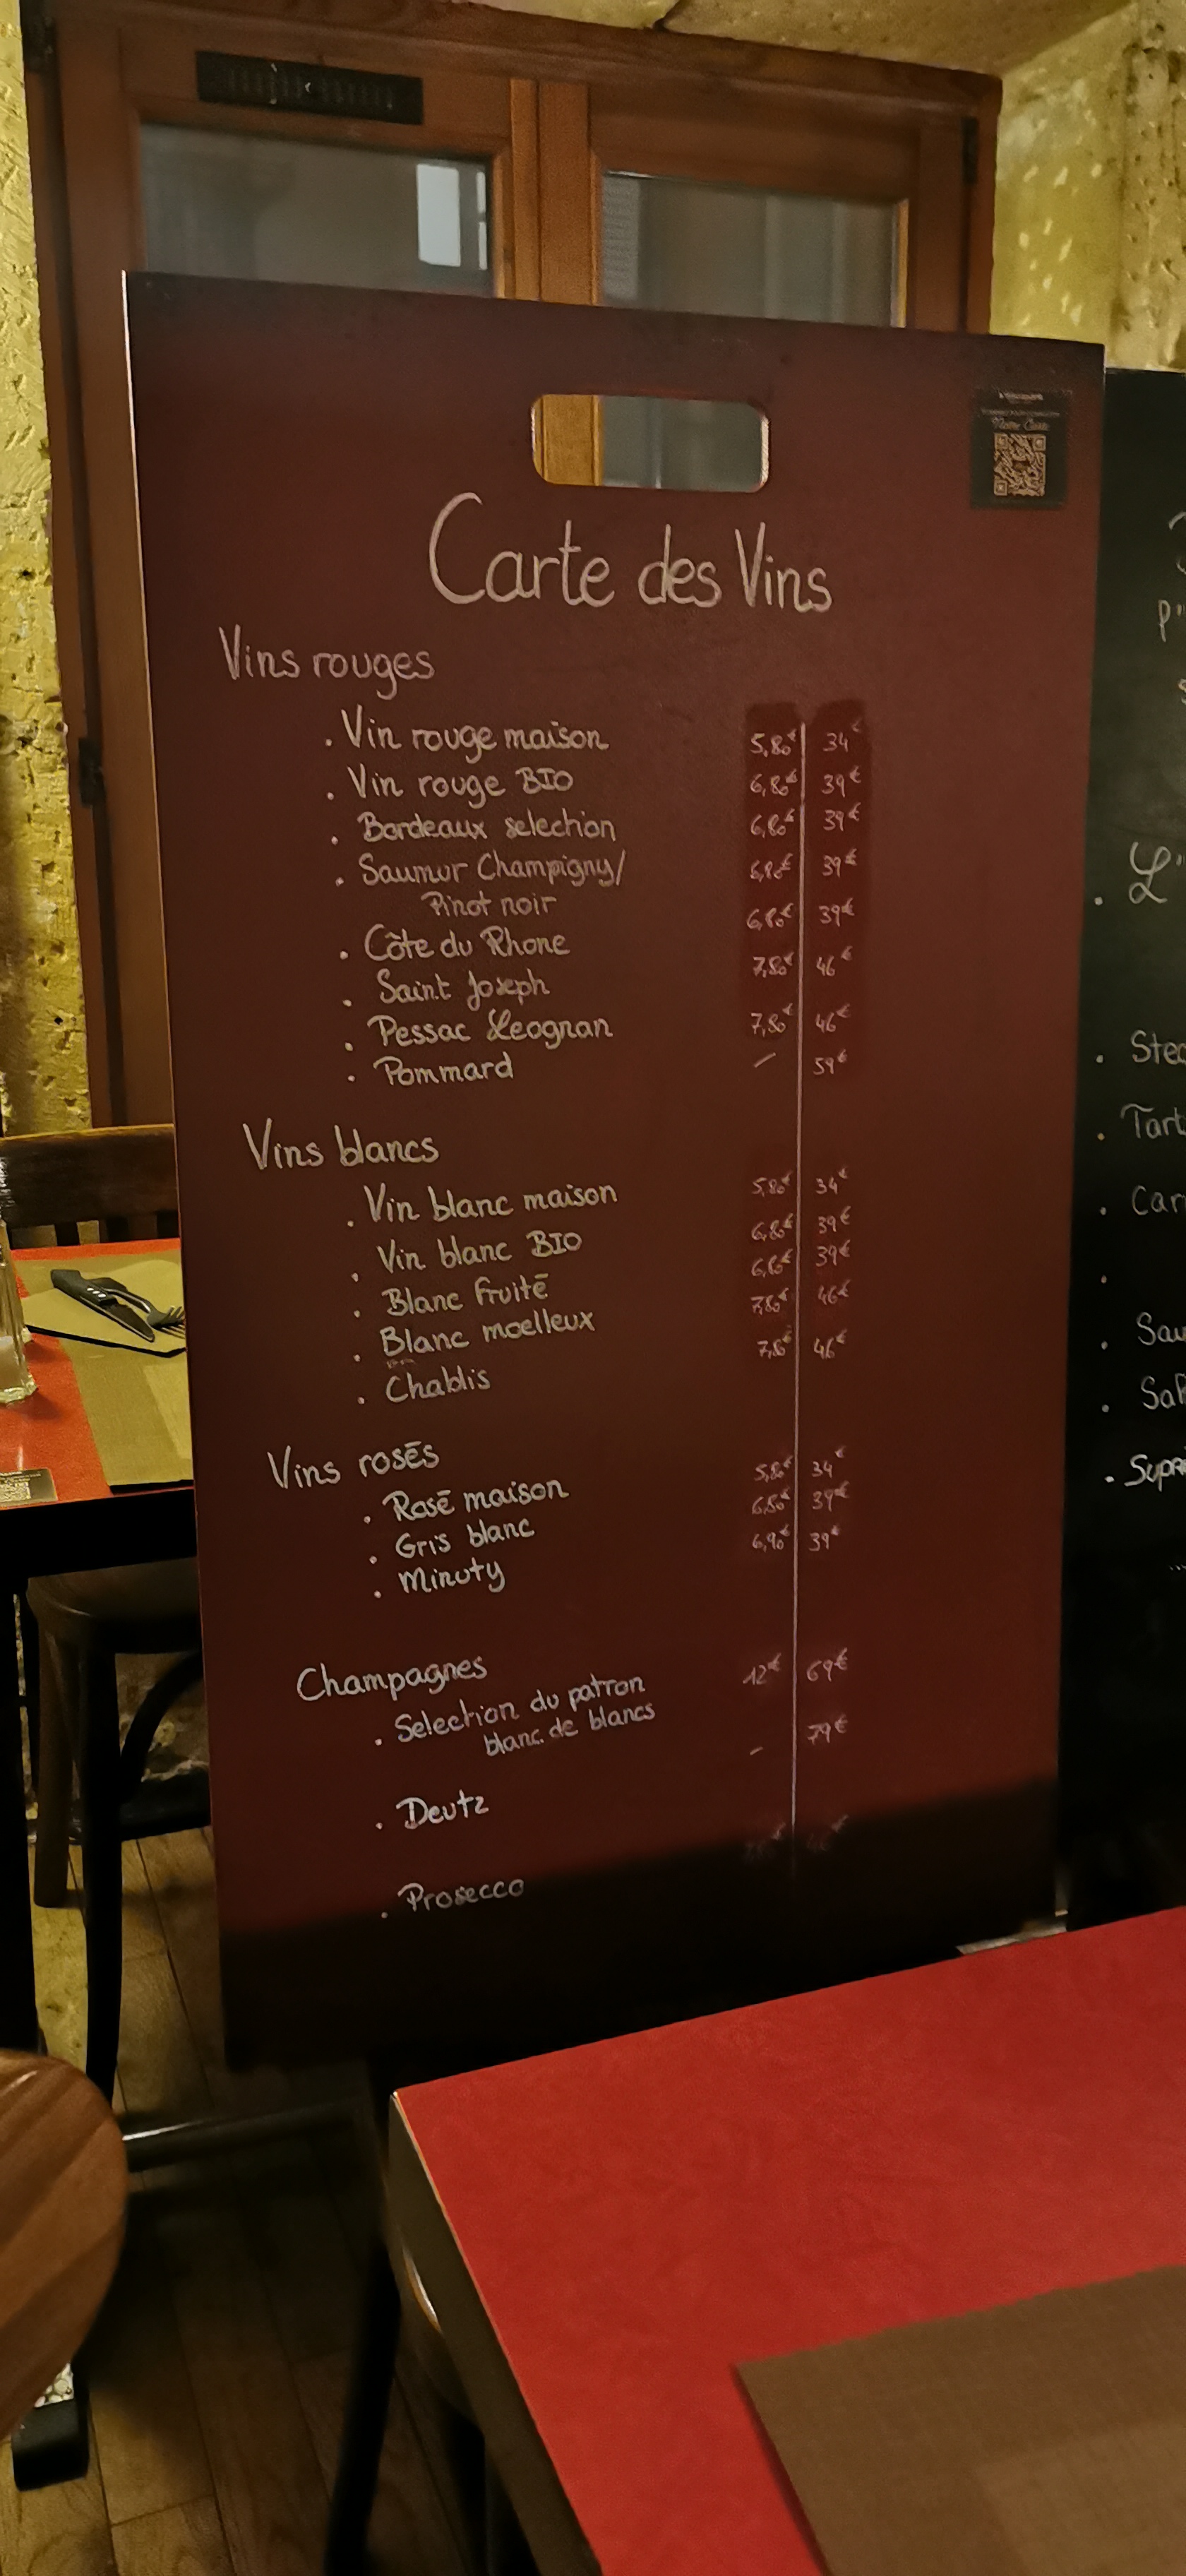 Notre Carte
Carte des Vins
Vins rouges
. Vin rouge maison 5,80€ 34€
. Vin rouge BIO 6,80€ 39€
. Bordeaux selection 6,80€ 39€
. Saumur Champigny/ 6,80€ 39€
Pinot noir
. Côte du Rhone 6,80€ 39€
. Saint Joseph 7,80€ 46€
. Pessac Leognan 7,80€ 46€
. Pommard - 59€
Vins blancs
. Vin blanc maison 5,80€ 34€
. Vin blanc BIO 6,80€ 39€
. Blanc fruité 6,80€ 39€
. Blanc moelleux 7,80€ 46€
. Chablis 7,80€ 46€
Vins rosés
. Rosé maison 5,80€ 34€
. Gris blanc 6,50€ 39€
. Minuty 6,90€ 39€
Champagnes
. Selection du patron 12€ 69€
blanc de blancs
. Deutz - 79€
. Prosecco